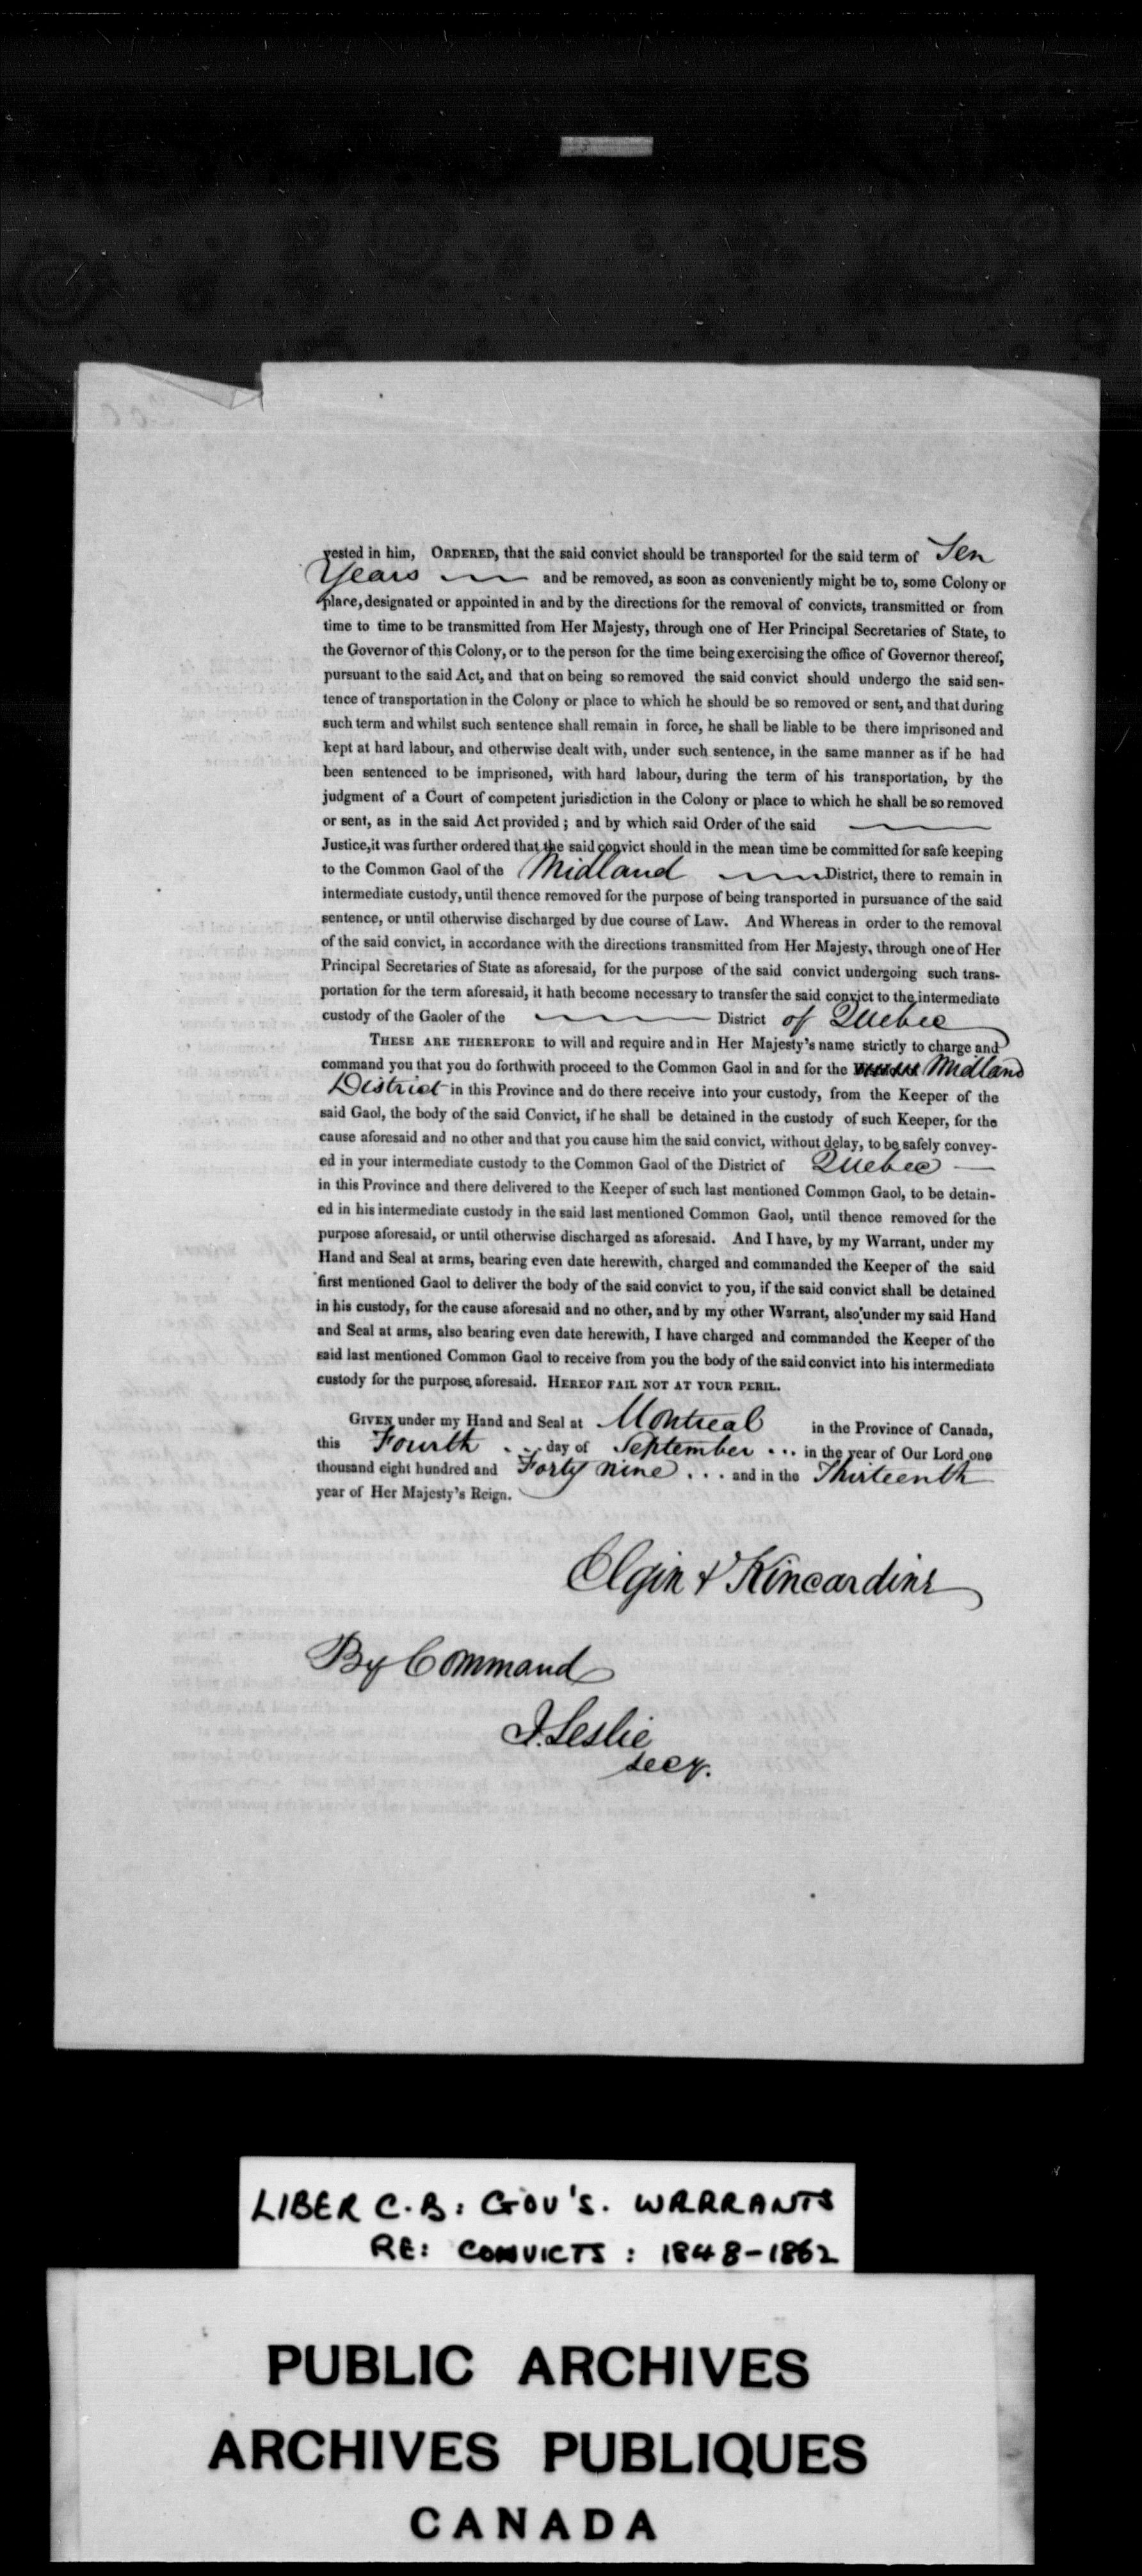 vested in him, ORDERED, that the said convict should be transported for the said term of Ten
Years and be removed, as soon as conveniently might be to, some Colony or
place, designated or appointed in and by the directions for the removal of convicts, transmitted or from
time to time to be transmitted from Her Majesty, through one of Her Principal Secretaries of State, to
the Governor of this Colony, or to the person for the time being exercising the office of Governor thereof,
pursuant to the said Act, and that on being so removed the said convict should undergo the said sen-
tence of transportation in the Colony or place to which he should be so removed or sent, and that during
such term and whilst such sentence shall remain in force, he shall be liable to be there imprisoned and
kept at hard labour, and otherwise dealt with, under such sentence, in the same manner as if he had
been sentenced to be imprisoned, with hard labour, during the term of his transportation, by the
judgment of a Court of competent jurisdiction in the Colony or place to which he shall be so removed
or sent, as in the said Act provided ; and by which said Order of the said
Justice, it was further ordered that the said convict should in the mean time be committed for safe keeping
to the Common Gaol of the Midland District, there to remain in
intermediate custody, until thence removed for the purpose of being transported in pursuance of the said
sentence, or until otherwise discharged by due course of Law. And Whereas in order to the removal
of the said convict, in accordance with the directions transmitted from Her Majesty, through one of Her
Principal Secretaries of State as aforesaid, for the purpose of the said convict undergoing such trans-
portation for the term aforesaid, it hath become necessary to transfer the said convict to the intermediate
custody of the Gaoler of the District of Quebec
THESE ARE THEREFORE to will and require and in Her Majesty's name strictly to charge and
command you that you do forthwith proceed to the Common Gaol in and for the Midland
District in this Province and do there receive into your custody, from the Keeper of the
said Gaol, the body of the said Convict, if he shall be detained in the custody of such Keeper, for the
cause aforesaid and no other and that you cause him the said convict, without delay, to be safely convey-
ed in your intermediate custody to the Common Gaol of the District of Quebec
in this Province and there delivered to the Keeper of such last mentioned Common Gaol, to be detain-
ed in his intermediate custody in the said last mentioned Common Gaol, until thence removed for the
purpose aforesaid, or until otherwise discharged as aforesaid. And I have, by my Warrant, under my
Hand and Seal at arms, bearing even date herewith, charged and commanded the Keeper of the said
first mentioned Gaol to deliver the body of the said convict to you, if the said convict shall be detained
in his custody, for the cause aforesaid and no other, and by my other Warrant, also under my said Hand
and Seal at arms, also bearing even date herewith, I have charged and commanded the Keeper of the
said last mentioned Common Gaol to receive from you the body of the said convict into his intermediate
custody for the purpose, aforesaid. HEREOF FAIL NOT AT YOUR PERIL.
GIVEN under my Hand and Seal at Montreal in the Province of Canada,
this Fourth . . . day of September . . . in the year of Our Lord one
thousand eight hundred and Forty nine . . . and in the Thirteenth
year of Her Majesty's Reign.
Elgin & Kincardine
By Command
J. Leslie
Secy.
LIBER C.B: GOV'S. WARRANTS
RE: CONVICTS : 1848-1862
PUBLIC ARCHIVES
ARCHIVES PUBLIQUES
CANADA